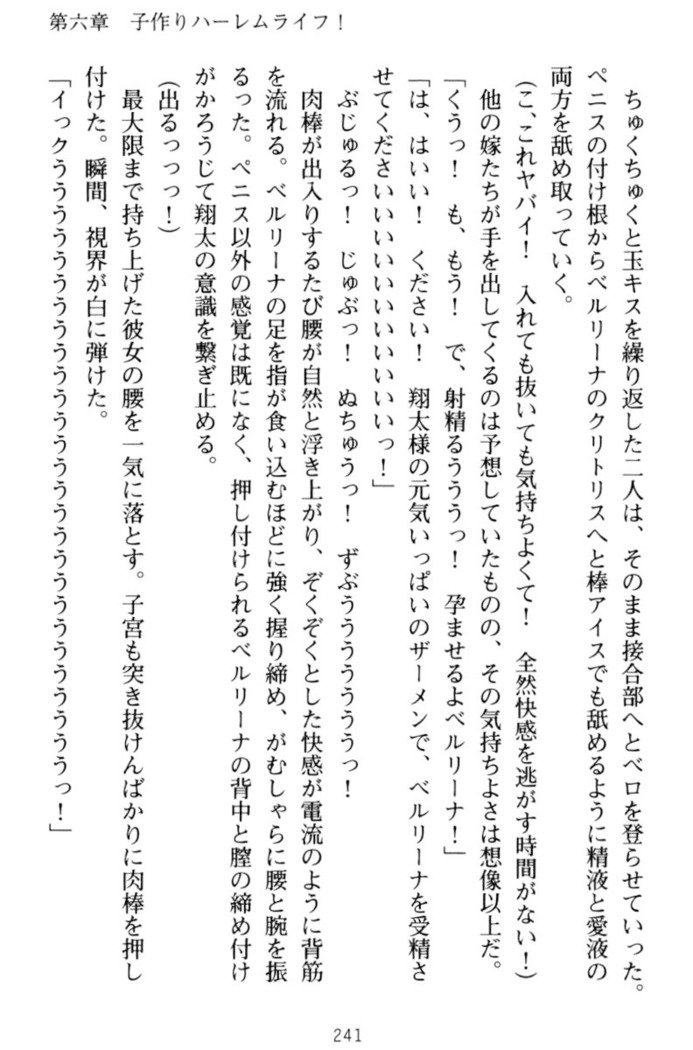 第六章　子作りハーレムライフ！
　ちゅくちゅくと玉キスを繰り返した二人は、そのまま接合部へとベロを登らせていった。
ペニスの付け根からベルリーナのクリトリスへと棒アイスでも舐めるように精液と愛液の
両方を舐め取っていく。
（こ、これヤバイ！　入れても抜いても気持ちよくて！　全然快感を逃がす時間がない！）
　他の嫁たちが手を出してくるのは予想していたものの、その気持ちよさは想像以上だ。
「くうっ！　も、もう！　で、射精るうううっ！　孕ませるよベルリーナ！」
「は、はいい！　ください！　翔太様の元気いっぱいのザーメンで、ベルリーナを受精さ
せてくださいいいいいいいいいいっ！」
　ぶじゅるっ！　じゅぶっ！　ぬちゅうっ！　ずぶううううううっ！
　肉棒が出入りするたび腰が自然と浮き上がり、ぞくぞくとした快感が電流のように背筋
を流れる。ベルリーナの足を指が食い込むほどに強く握り締め、がむしゃらに腰と腕を振
るった。ペニス以外の感覚は既になく、押し付けられるベルリーナの背中と膣の締め付け
がかろうじて翔太の意識を繋ぎ止める。
（出るっっっ！）
　最大限まで持ち上げた彼女の腰を一気に落とす。子宮も突き抜けんばかりに肉棒を押し
付けた。瞬間、視界が白に弾けた。
「イっクうううううううううううううううううううううううううっ！」
241